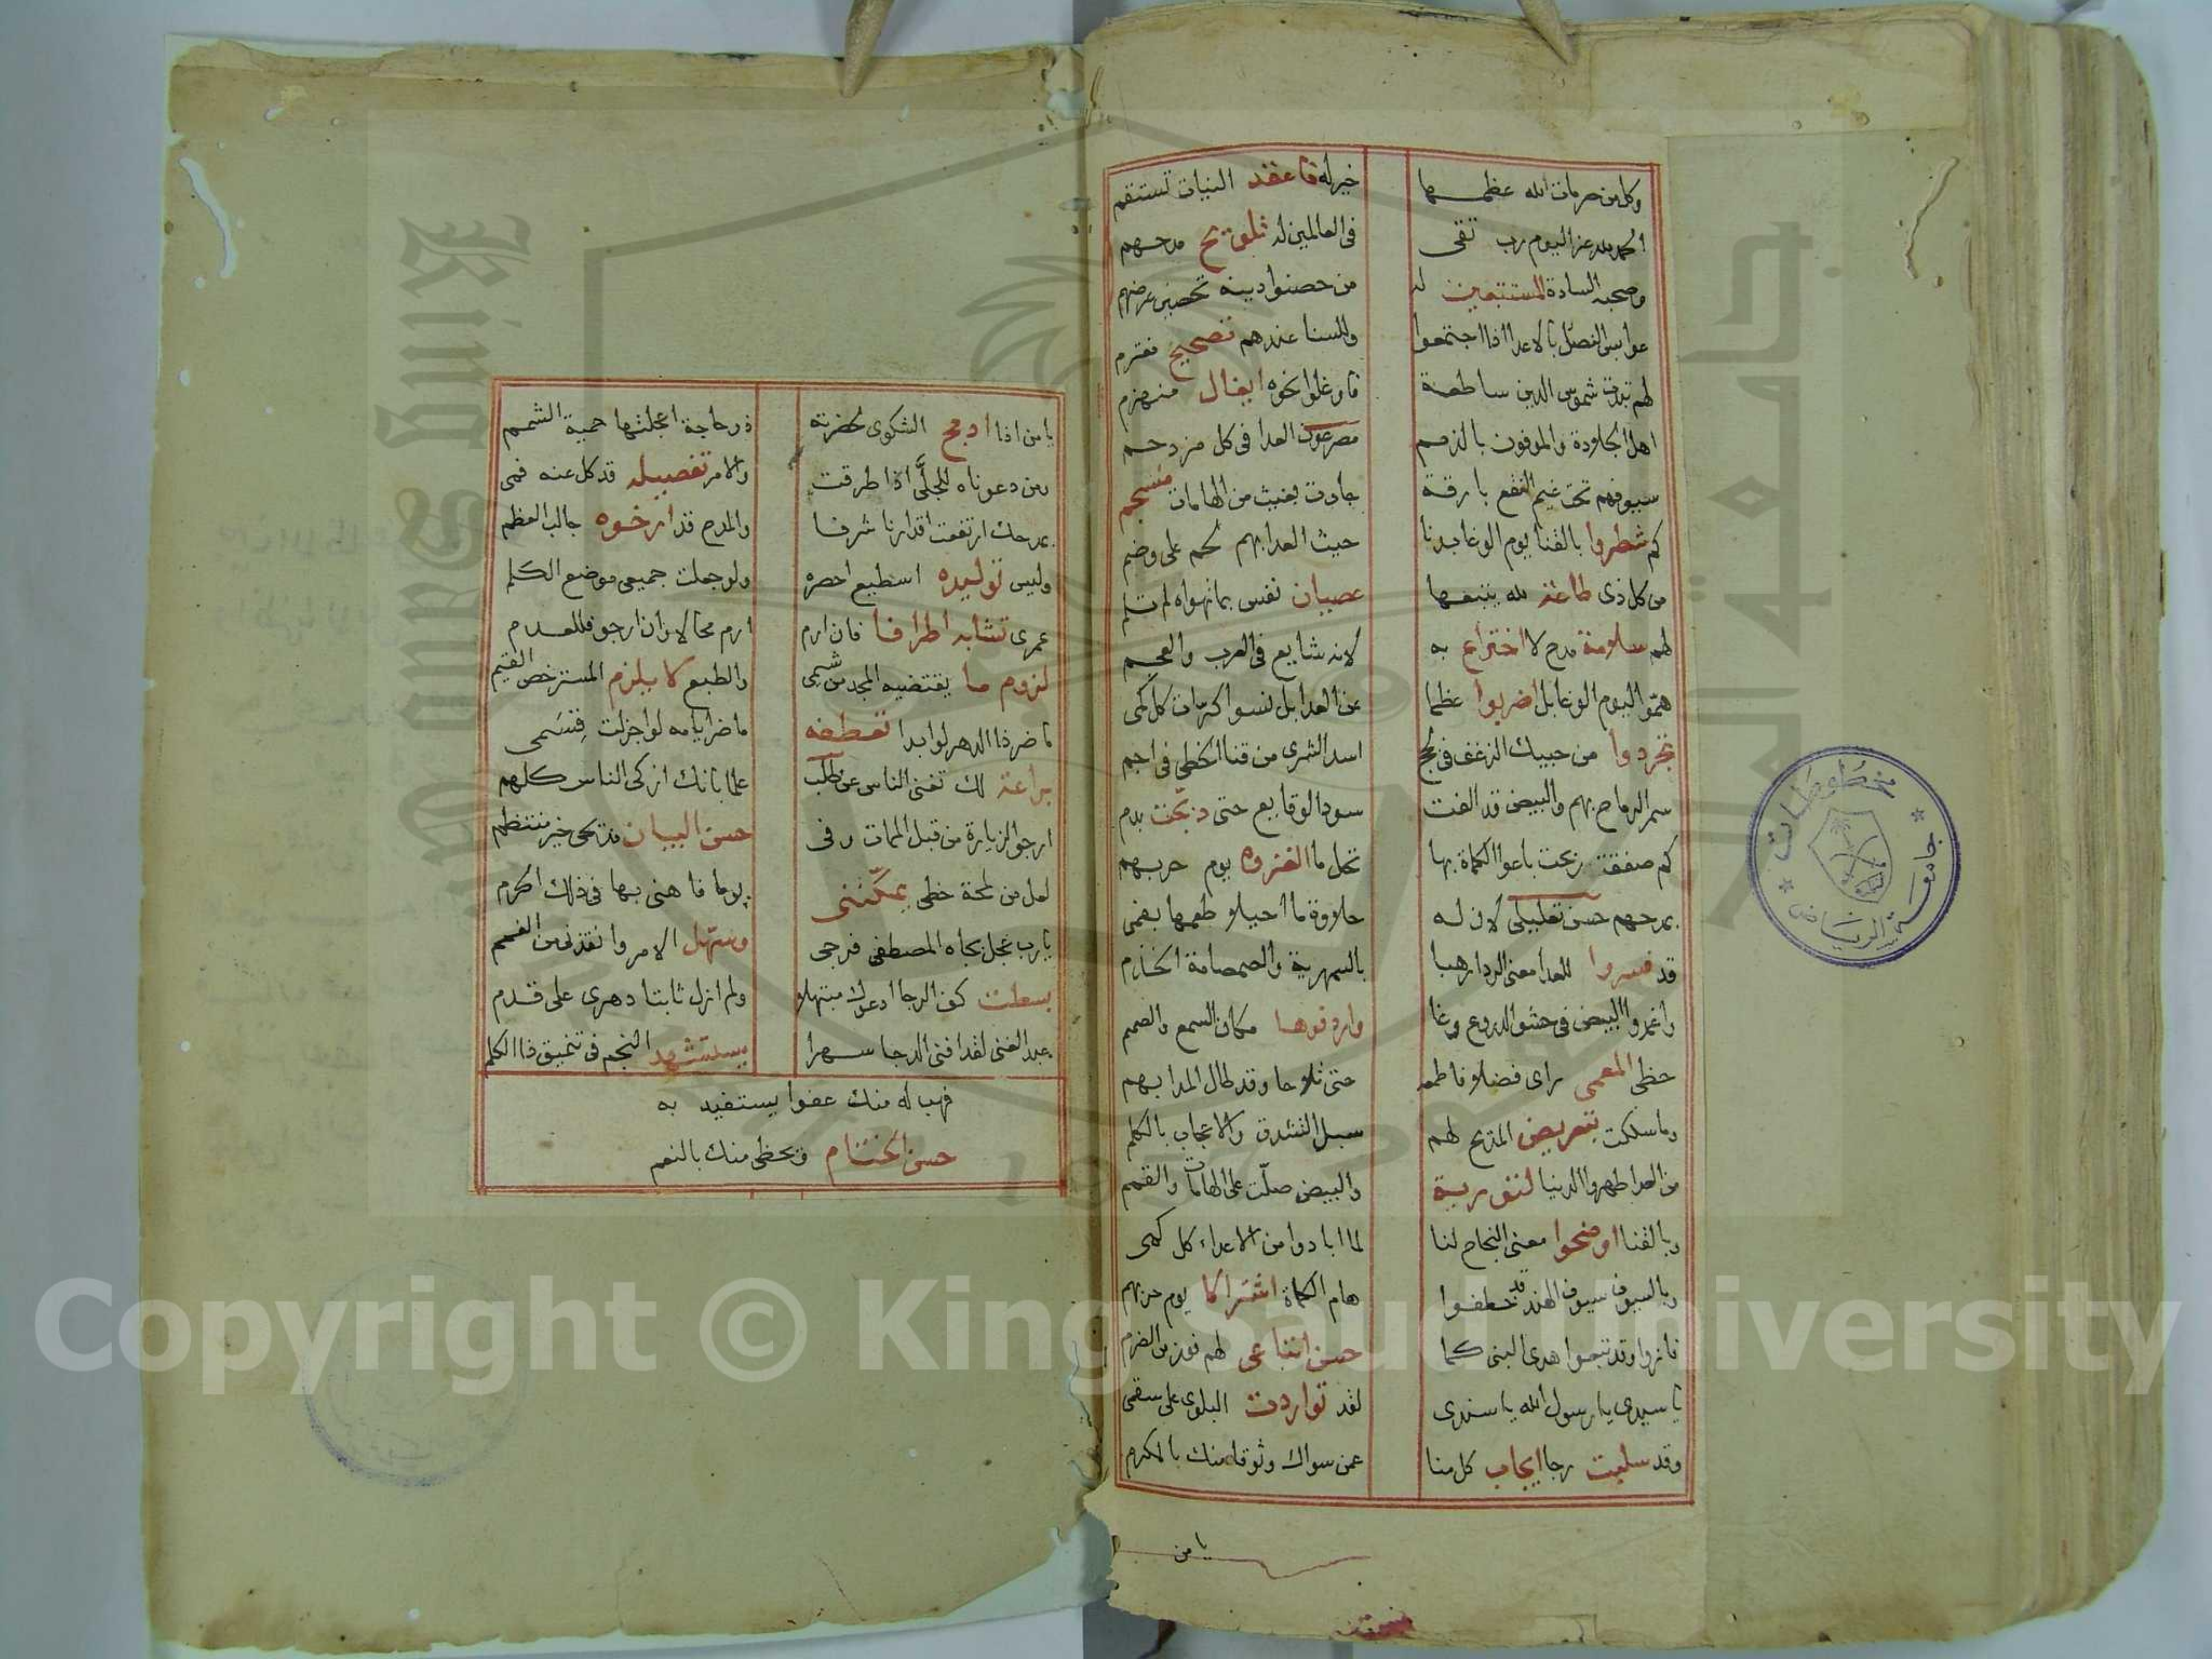 وكل من حرمات الله عظمها خير له فاعقد النيات تستقم
الحمد لله عز اليوم رب تقى في العالمين له تلويح مدحهم
وصحبه السادة المستتبعين له من حصنوا دينه تحصين عرضهم
عوابس الفصل بالاعدا اذا اجتمعوا وللسنا عندهم تصحيح مغترم
لهم تبدت شموس الدين ساطعة فاوغلوا نحوه ايغال منهزم
اهل الجلادة والموفون بالذمم مصرعون العدا في كل مزدحم
سيوفهم تحت غيم النقع بارقة جادت بغيث من الهامات منسجم
كم شطروا بالقنا يوم الوغا بدنا حيث العدا بهم لحم على وضم
من كل ذي طاعة لله يتبعها عصيان نفس بما تهواه لم تلم
لهم سلامة مدح لا اختراع به لانه شايع في العرب والعجم
همّوا اليوم الوغا بل اضربوا عظما عن العدا بل نسوا كرات كل كمى
تجردوا من حبيك الزغف في لجج اسد الشرى من قنا الخطى في اجم
سمر الرماح بهم والبيض قد الفت سود الوقايع حتى دبّجت بدم
كم صفقة ربحت باعوا الكماة بها تحل ما الغزوه يوم حربهم
بمدحهم حسن تعليلى لان له حلاوة ما احيلا طعمها بفمى
قد فسروا للعدا معنى الردا رهبا بالسمهرية والصمصامة الخذم
واغمدوا البيض في حشو الدروع وغا واردفوها مكان السمع والصمم
حظى المعمى راى فضلا فاطمعه حتى تلاحا وقد طال المدا بهم
وما سلكت بتعريض المديح لهم سبل التشدق والاعجاب بالكلم
من العدا طهروا الدنيا لتورية والبيض صلّت على الهامات والقمم
وبالقنا اوضحوا معنى النجاح لنا لما ابادوا من الاعداء كل كمى
وبالسيوف سيوف الهند قد خطفوا هام الكماة اشتراكا يوم حزبهم
فازوا وقد تبعوا هدى النبى كما حسن اتباعى لهم فوز من الضرم
يا سيدى يا رسول الله يا سندى لقد تواردت البلوى على سقمى
وقد سلبت رجا ايجاب كل منا عمن سواك وثوقا منك بالكرم
يا من
يا من اذا ادمج الشكوى لحضرته ذو حاجة اعجلتها حمية الشمم
ومن دعوناه للجلَّى اذا طرقت والامر تفصيله قد كل عنه فمى
بمدحك ارتفعت اقدارنا شرفا والمدح قد ارخوه جالب العظم
وليس توليده اسطيع احصره ولو جعلت جميعى موضع الكلم
عمرى تشابه اطرافا فان ارم ارم محالا وان ارجو فللعدم
لزوم ما يقتضيه المجد من شيمى والطبع لا يلزم المسترخص القيم
ما ضر ذا الدهر لو ابدا تعطفه ما ضر ايامه لو اجزلت قسمى
براعة لك تغنى الناس عن طلب علما بانك ازكى الناس كلهم
ارجو الزيارة من قبل الممات وفى حسن البيان مديحى خير منتظم
لعل من لمحة حظى يمكّننى يوما فاهنى بها في ذلك الحرم
يا رب عجل بجاه المصطفى فرجى وسهّل الامر وانقذنى من الغمم
بسطت كف الرجا ادعوك مبتهلا ولم ازل ثابتا دهرى على قدم
عبد الغنى لقد افنى الدجا سهرا يستشهد النجم في تنميق ذا الكلم
فهب له منك عفوا يستفيد به
حسن الختتام ويحظى منك بالنعم
مخطوطات
جامعة الرياض
Copyright © King Saud University